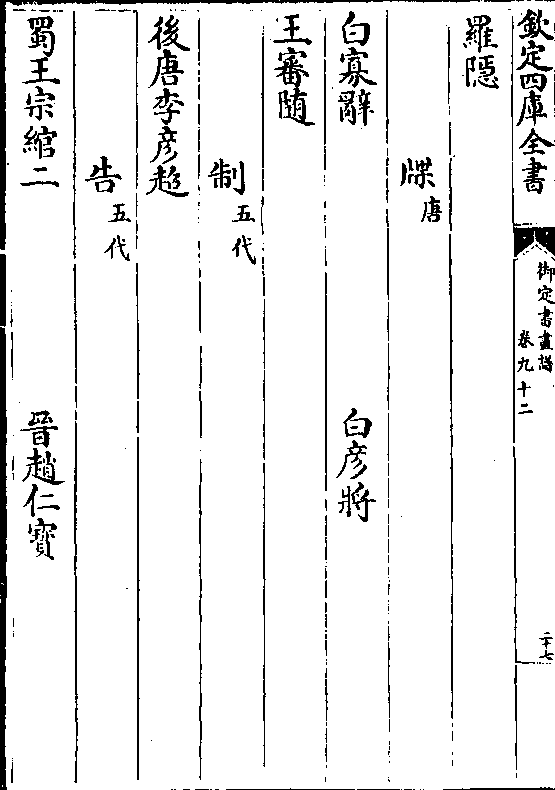 欽定四庫全書
御定書畫譜
卷九十二
二十七
羅隱
牒唐
白寡辭
白彥將
王審隨
制五代
後唐李彥超
告五代
蜀王宗綰二
晉趙仁寶